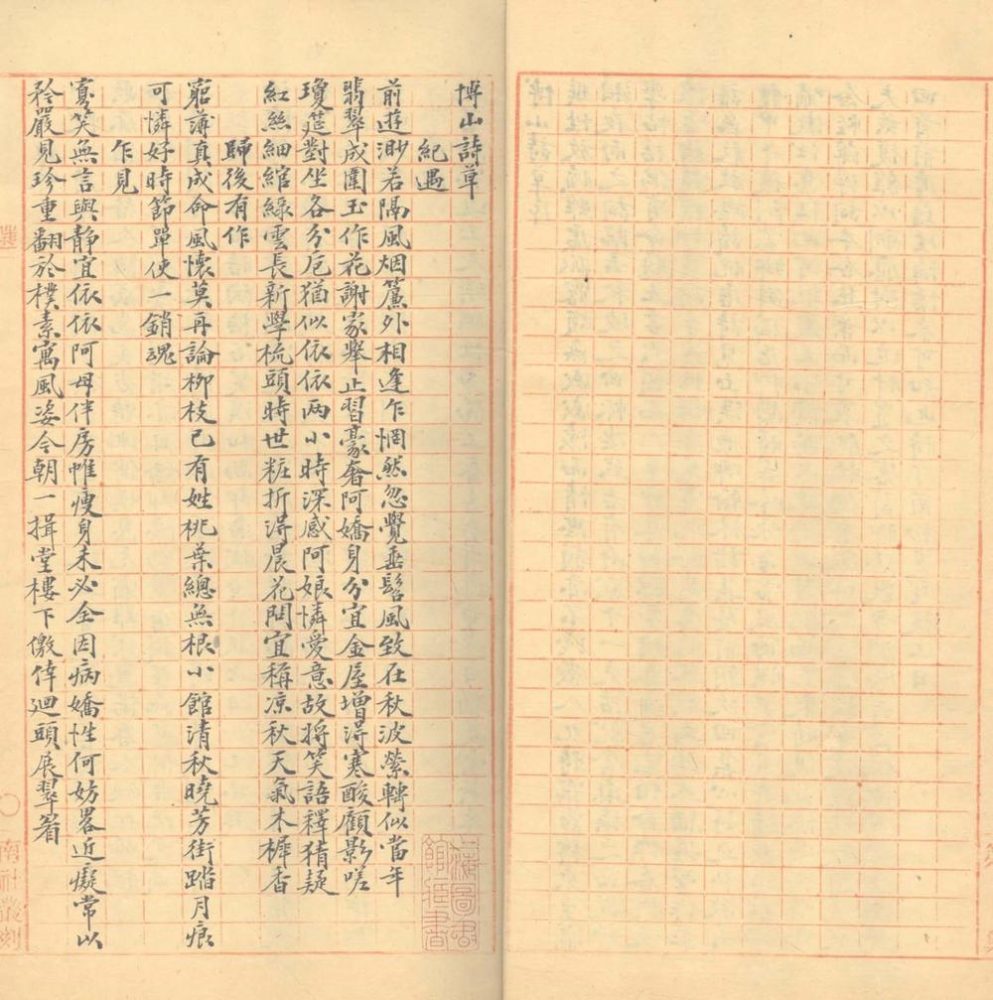 博山詩草
紀遇
前遊渺若隔風烟簾外相逢乍惘然忽覺垂髫風致在秋波縈轉似當年
翡翠成圍玉作花謝家舉止習豪奢阿嬌身分宜金屋增得寒酸顧影嗟
瓊筵對坐各分巵猶似依依两小時深感阿娘憐愛意故將笑語釋猜疑
紅絲細綰綠雲長新學梳頭時世粧折得晨花問宜稱凉秋天氣木樨香
歸後有作
窮薄真成命風懷莫再論柳枝已有姓桃葉總無根小館清秋曉芳街踏月痕
可憐好時節單使一銷魂
乍見
寡笑無言與靜宜依依阿母伴房帷瘦身未必全因病嬌性何妨畧近癡常以
矜嚴見珍重翻於樸素寓風姿今朝一揖堂樓下儌倖廻頭展翠眉
上海圖書
館藏書
南社叢刻